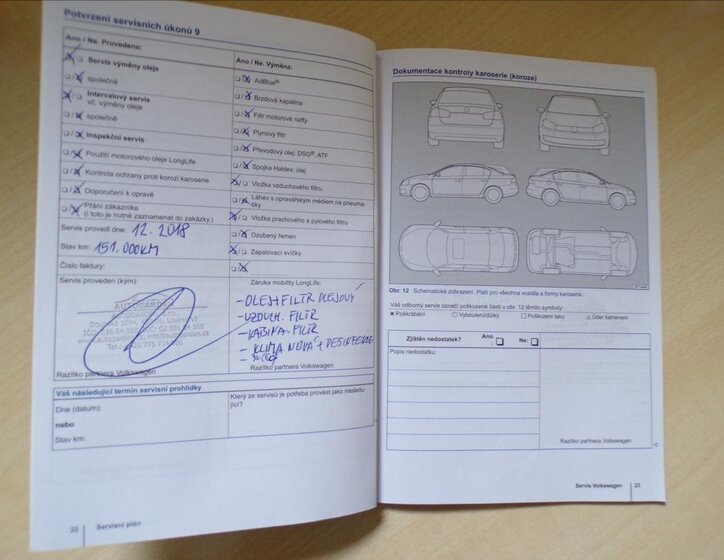 Potvrzení servisních úkonů 9
Ano / Ne. Provedeno:
Servis výměny oleje
společně
Intervalový servis
vč. výměny oleje
společně
Inspekční servis
Použití motorového oleje LongLife
Kontrola ochrany proti korozi karoserie
Doporučení k opravě
Přání zákazníka
(i toto je nutné zaznamenat do zakázky.)
Servis provedl dne: 12. 2018
Stav km: 151.000KM
Číslo faktury:
Servis proveden (kým):
Razítko partnera Volkswagen
Ano / Ne. Výměna:
AdBlue®
Brzdová kapalina
Filtr motorové nafty
Plynový filtr
Převodový olej: DSG®, ATF
Spojka Haldex: olej
Vložka vzduchového filtru
Láhev s opravářským médiem na pneumatiky
Vložka prachového a pylového filtru
Ozubený řemen
Zapalovací svíčky
Záruka mobility LongLife:
-OLEJ+FILTR OLEJOVÝ
-VZDUCH. FILTR
-KABINA. FILTR
- KLIMA NOVÁ +
Razítko partnera Volkswagen
Váš následující termín servisní prohlídky
Dne (datum):
nebo
Stav km:
Který ze servisů je potřeba provést jako následující?
22
Servisní plán
Dokumentace kontroly karoserie (koroze)
Obr. 12 Schematické zobrazení. Platí pro všechna vozidla a formy karoserie.
Váš odborný servis označí poškozené části v obr. 12 těmito symboly:
× Poškrábání ○ Vyboulení/důlky □ Poškození laku △ Úder kamenem
Zjištěn nedostatek? Ano : Ne:
Popis nedostatku:
Razítko partnera Volkswagen
Servis Volkswagen
23